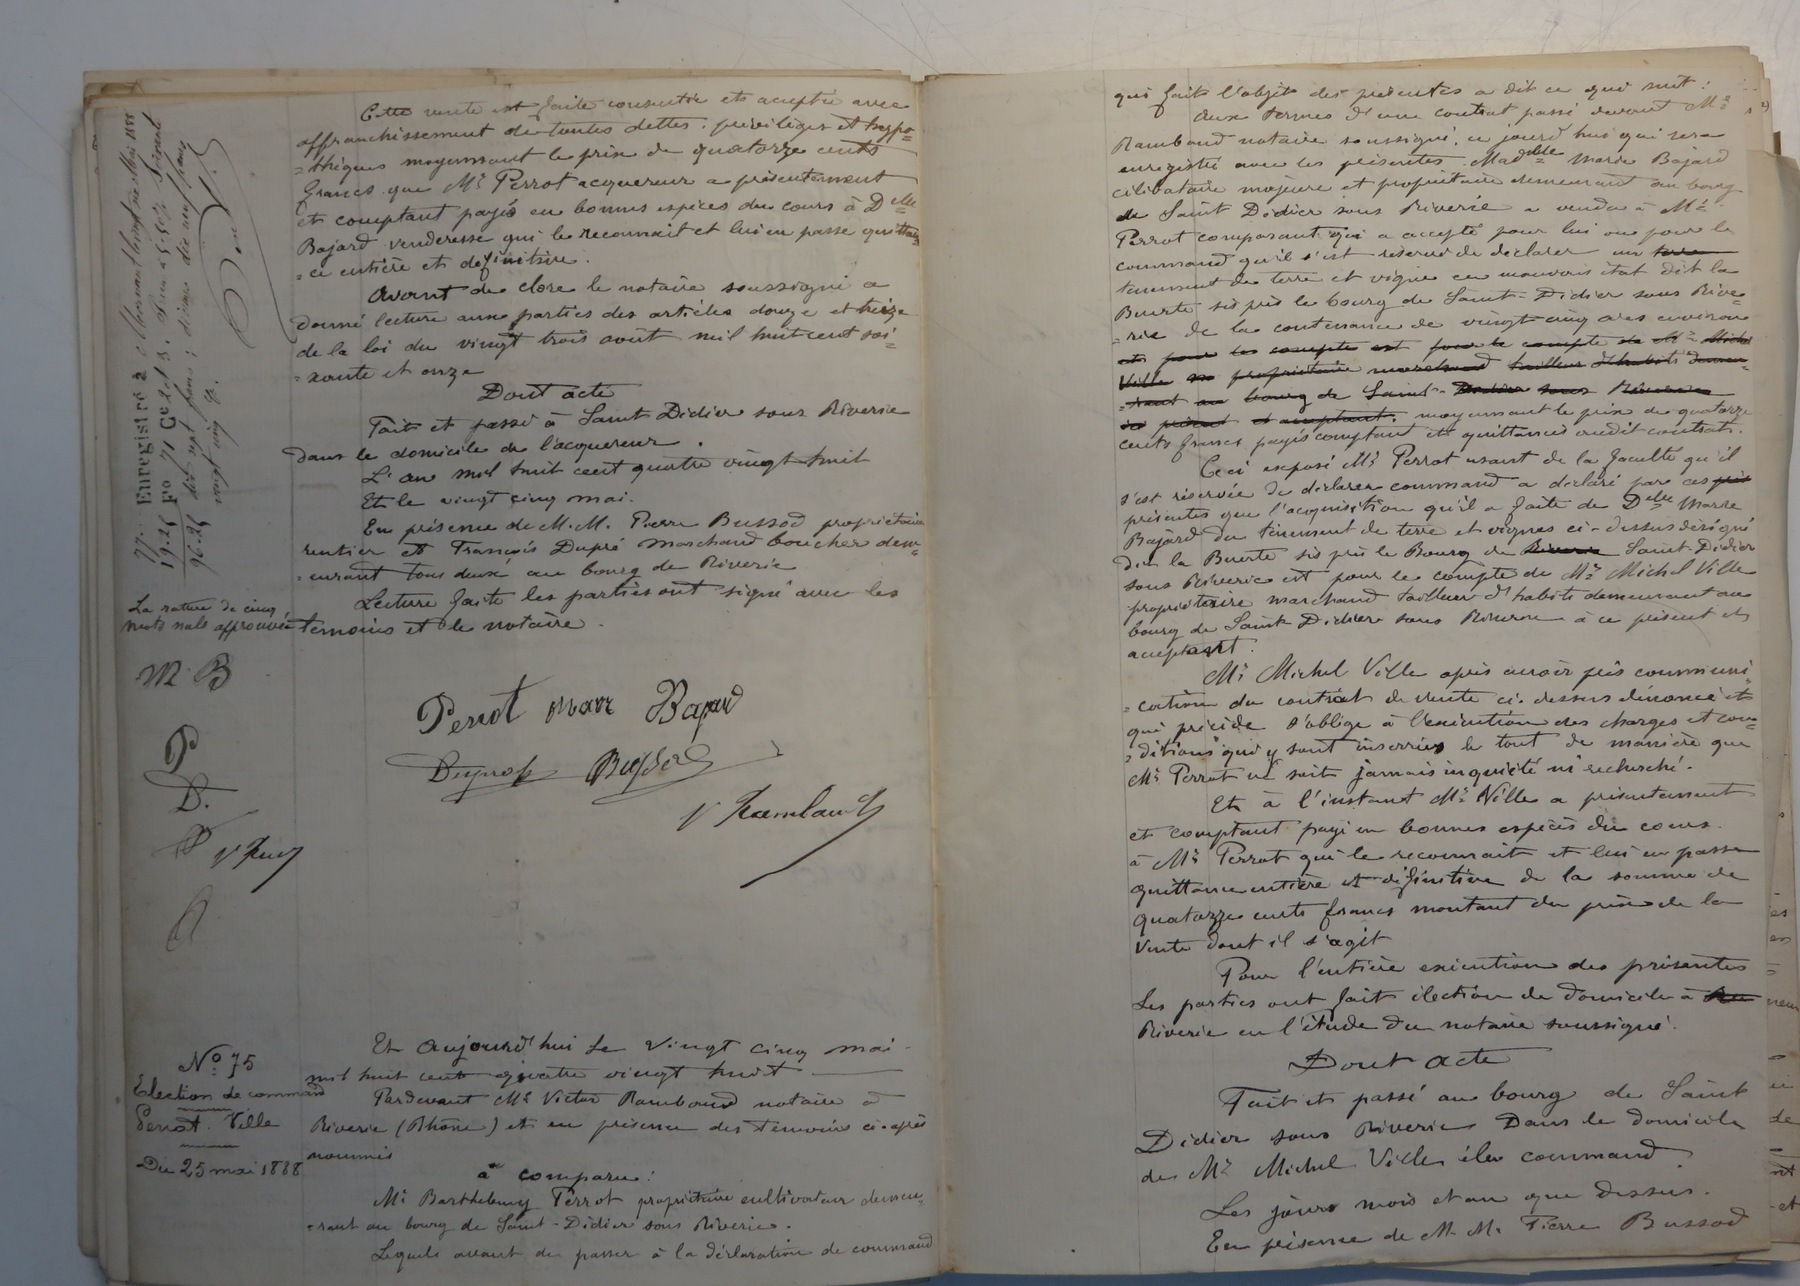 Cette vente est faite consentie et acceptée avec
affranchissement de toutes dettes, privilèges et hypo=
=thèques moyennant le prix de quatorze cents
francs que Mr Perrot acquereur a présentement
et comptant payés en bonnes espèces du cours à Delle
Bajard venderesse qui le reconnait et lui en passe quittan
=ce entière et definitive.
Avant de clore le notaire soussigné a
donné lecture aux parties des articles douze et treize
de la loi du vingt trois août mil huit cent soi=
=xante et onze
Dont acte
Fait et passé à Saint Didier sous Riverie
dans le domicile de l'acquereur.
L'an mil huit cent quatre vingt huit
Et le vingt cinq mai.
En présence de M.M. Pierre Bussod propriétaire
rentier et François Dupré marchand boucher dem=
=eurant tous deux au bourg de Riverie
Lecture faite les parties ont signé avec les
temoins et le notaire.
La rature de cinq
mots nuls approuvée
M B
P
D.
Perrot Marie Bajard
Bussod
V Rambaud
Enregistré à
19.25 Fo 71 Ce
96.25
No 75
Election de command
Perrot. Ville
Du 25 mai 1888
Et aujourd'hui Le vingt cinq mai
mil huit cent quatre vingt huit
Pardevant Me Victor Rambaud notaire à
Riverie (Rhône) et en présence des temoins ci-après
nommés
a comparu:
Mr Barthélemy Perrot propriétaire cultivateur demeu=
=rant au bourg de Saint-Didier sous Riverie.
Lequel avant de passer à la déclaration de command
qui fait l'objet des présentes a dit ce qui suit:
Aux termes d'un contrat passé devant Me
Rambaud notaire soussigné, ce jourd'hui qui sera
enregistré avec les présentes. Madelle Marie Bajard
célibataire majeure et propriétaire demeurant au bourg
de Saint Didier sous Riverie a vendu à Mr
Perrot comparant qui a accepté pour lui ou pour le
command qu'il s'est réservé de déclarer un terre
tenement de terre et vigne en mauvais état dit la
Buerte sis près le bourg de Saint-Didier sous Rive=
=rie de la contenance de vingt cinq ares environ
et pour les compte est pour le compte de Mr Michel
Ville propriétaire marchand tailleur d'habits demeu=
=rant au bourg de Saint-Didier sous Riverie
ici présent et acceptant. moyennant le prix de quatorze
cents francs payés comptant et quittancés audit contrat.
Ceci exposé Mr Perrot usant de la faculté qu'il
s'est réservée de déclarer command a déclaré par ces
présentes que l'acquisition qu'il a faite de Delle Marie
Bajard du tenement de terre et vignes ci-dessus désigné
dit la Buerte sis près le Bourg de Riverie Saint-Didier
sous Riverie est pour le compte de Mr Michel Ville
propriétaire marchand tailleur d'habits demeurant au
bourg de Saint Didier sous Riverie à ce présent et
acceptant.
Mr Michel Ville après avoir pris communi=
=cation du contrat de vente ci-dessus énoncé et
qui précède s'oblige à l'exécution des charges et con=
=ditions qui y sont inserrées le tout de manière que
Mr Perrot ne soit jamais inquiété ni recherché.
Et à l'instant Mr Ville a présentement
et comptant payé en bonnes espèces du cours.
à Mr Perrot qui le reconnait et lui en passe
quittance entière et définitive de la somme de
quatorze cents francs montant du prix de la
vente dont il s'agit
Pour l'entière exécution des présentes
Les parties ont fait élection de domicile à
Riverie en l'étude du notaire soussigné.
Dont acte
Fait et passé au bourg de Saint
Didier sous Riverie Dans le domicile
de Mr Michel Ville élu command.
Les jours mois et an que dessus.
En présence de M.M. Pierre Bussod